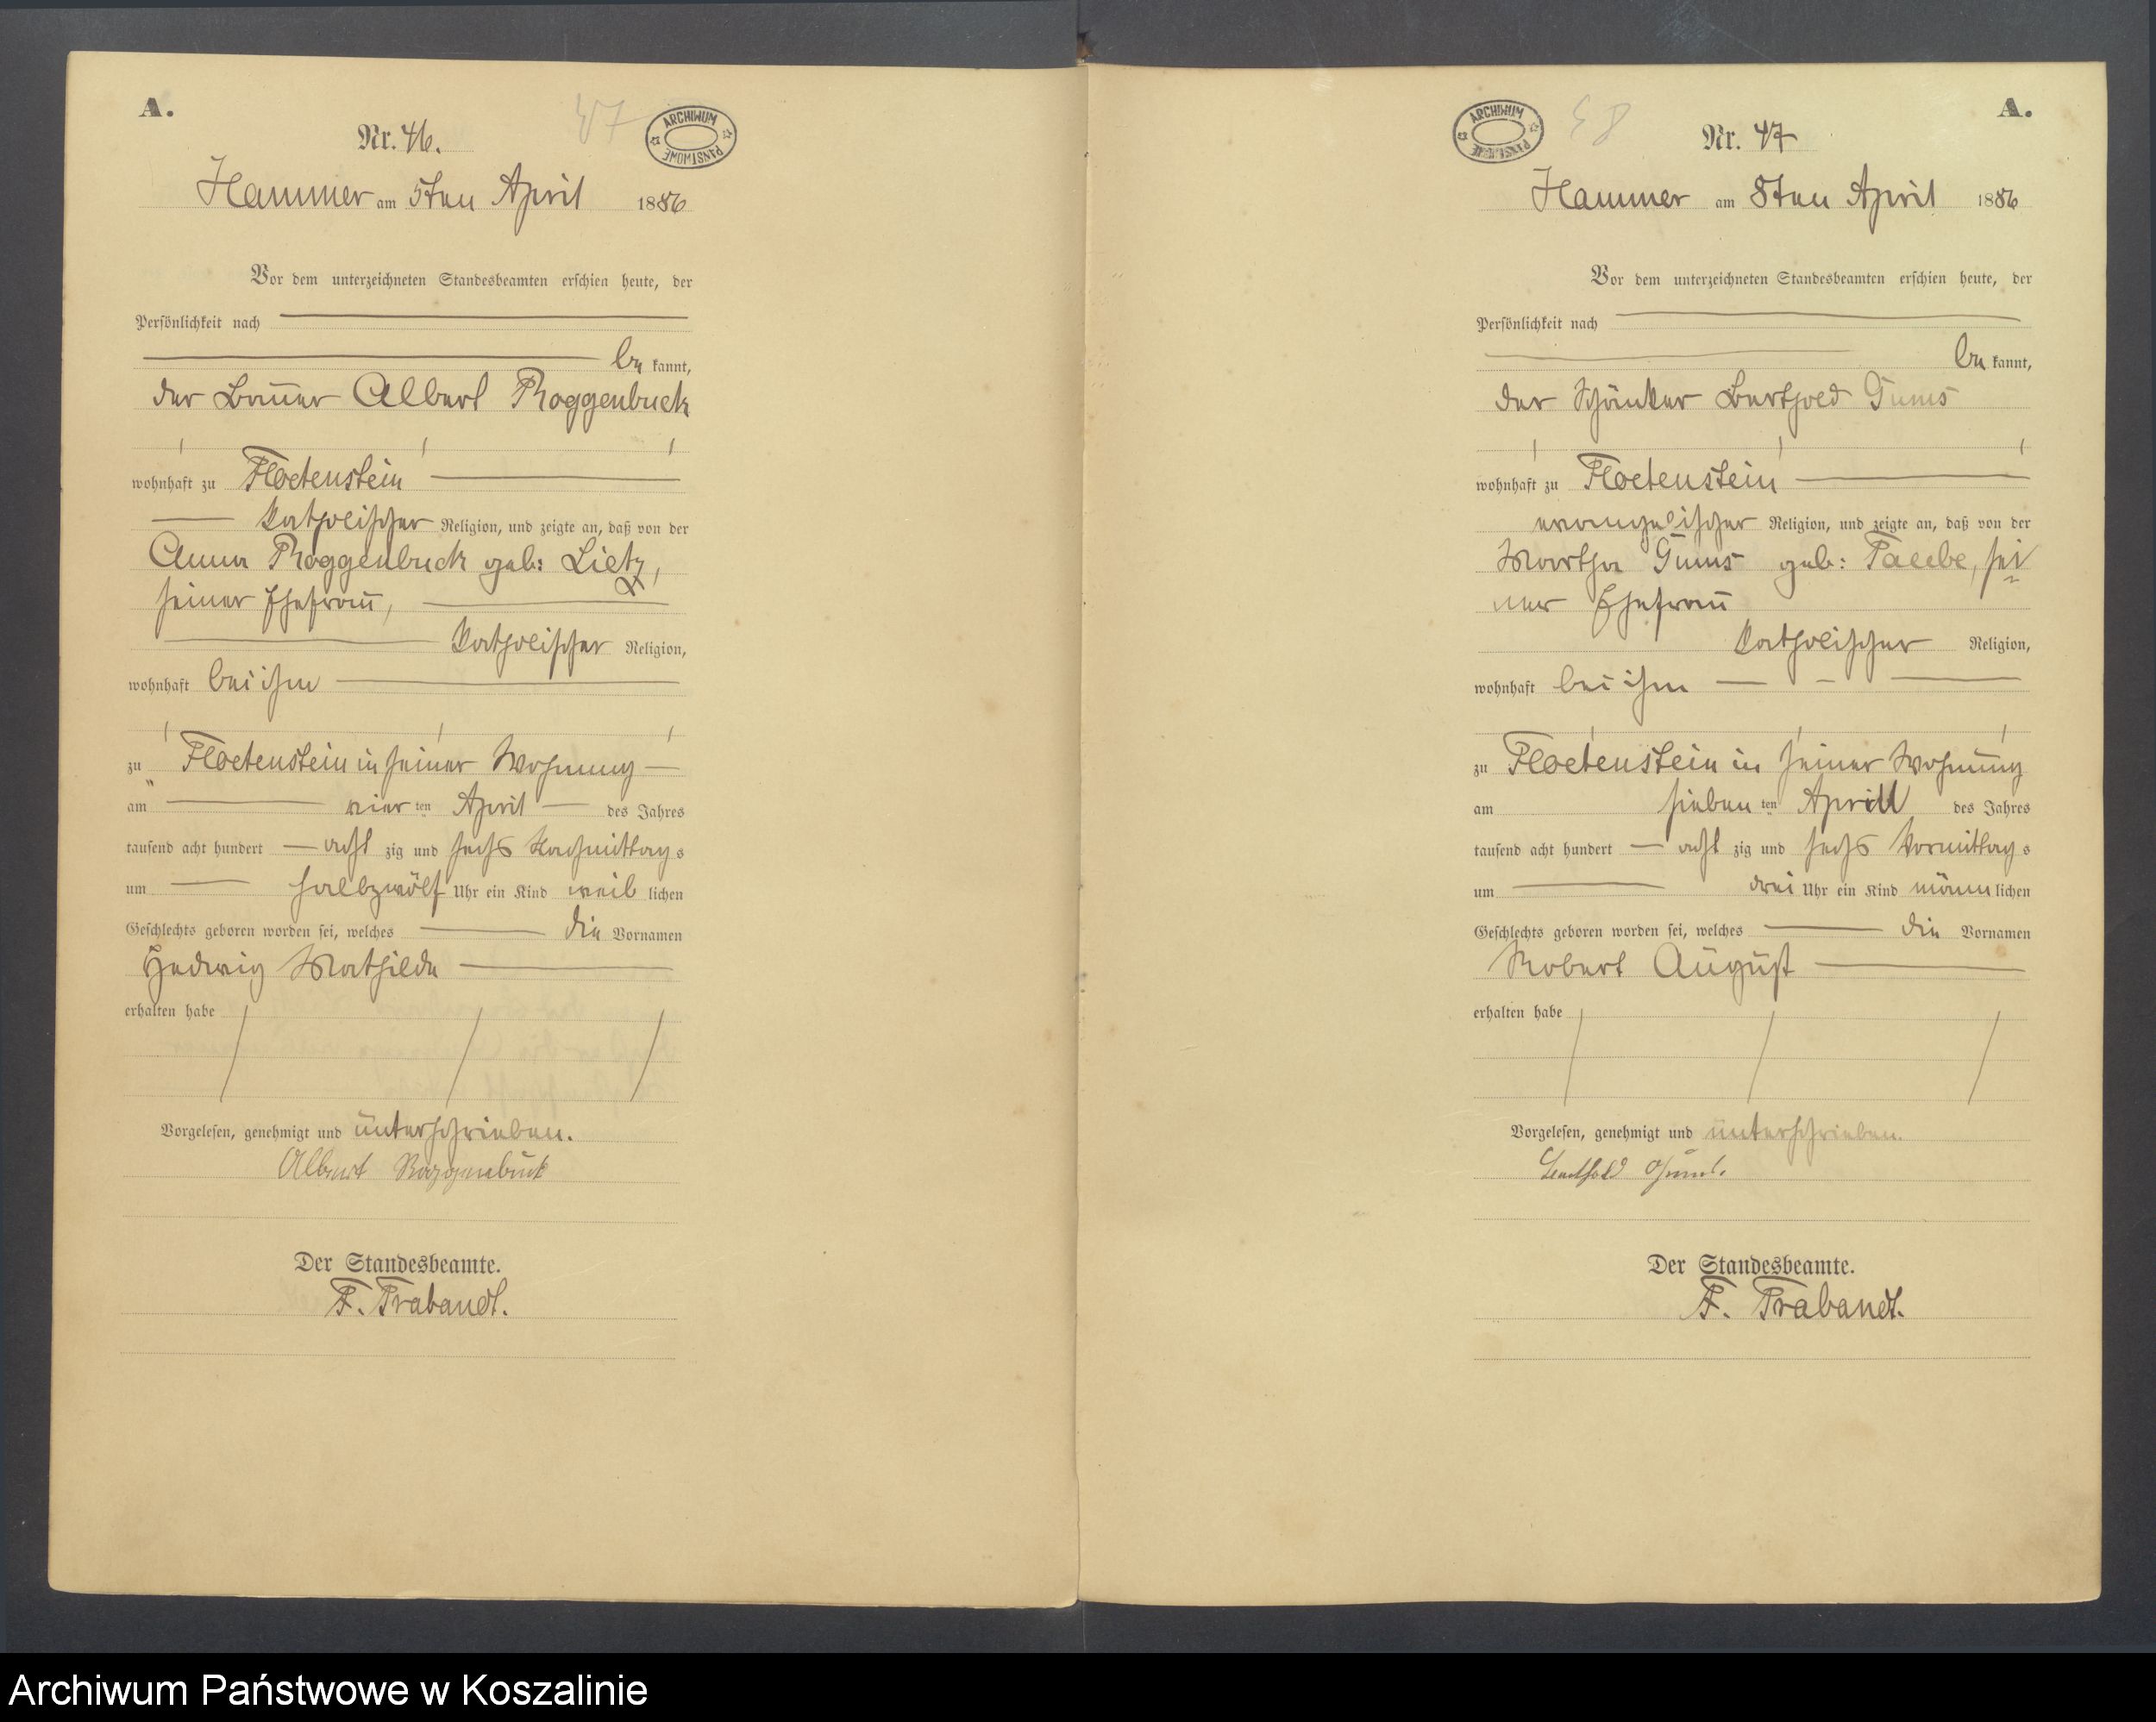 A.
47
ARCHIWUM PAŃSTWOWE
Nr. 46.
Hammer am 5ten April 1886
Vor dem unterzeichneten Standesbeamten erschien heute, der
Persönlichkeit nach
be kannt,
der Bauer Albert Roggenbuck
wohnhaft zu Floetenstein
katholischer Religion, und zeigte an, daß von der
Anna Roggenbuck geb: Lietz,
seiner Ehefrau,
katholischer Religion,
wohnhaft bei ihm
zu Floetenstein in seiner Wohnung
am vier ten April des Jahres
tausend acht hundert acht zig und sechs Nachmittag s
um halbzwölf Uhr ein Kind weib lichen
Geschlechts geboren worden sei, welches die Vornamen
Hedwig Mathilde
erhalten habe
Vorgelesen, genehmigt und unterschrieben.
Albert Roggenbuck
Der Standesbeamte.
F. Trabandt.
A.
ARCHIWUM PAŃSTWOWE
48
Nr. 47
Hammer am 8ten April 1886
Vor dem unterzeichneten Standesbeamten erschien heute, der
Persönlichkeit nach
be kannt,
der Schänker Berthold Gums
wohnhaft zu Floetenstein
evangelischer Religion, und zeigte an, daß von der
Martha Gums geb: sei
ner Ehefrau
katholischer Religion,
wohnhaft bei ihm
zu Floetenstein in seiner Wohnung
am sieben ten April des Jahres
tausend acht hundert acht zig und sechs Vormittag s
um drei Uhr ein Kind männ lichen
Geschlechts geboren worden sei, welches die Vornamen
Robert August
erhalten habe
Vorgelesen, genehmigt und unterschrieben.
Berthold Gums.
Der Standesbeamte.
F. Trabandt.
Archiwum Państwowe w Koszalinie